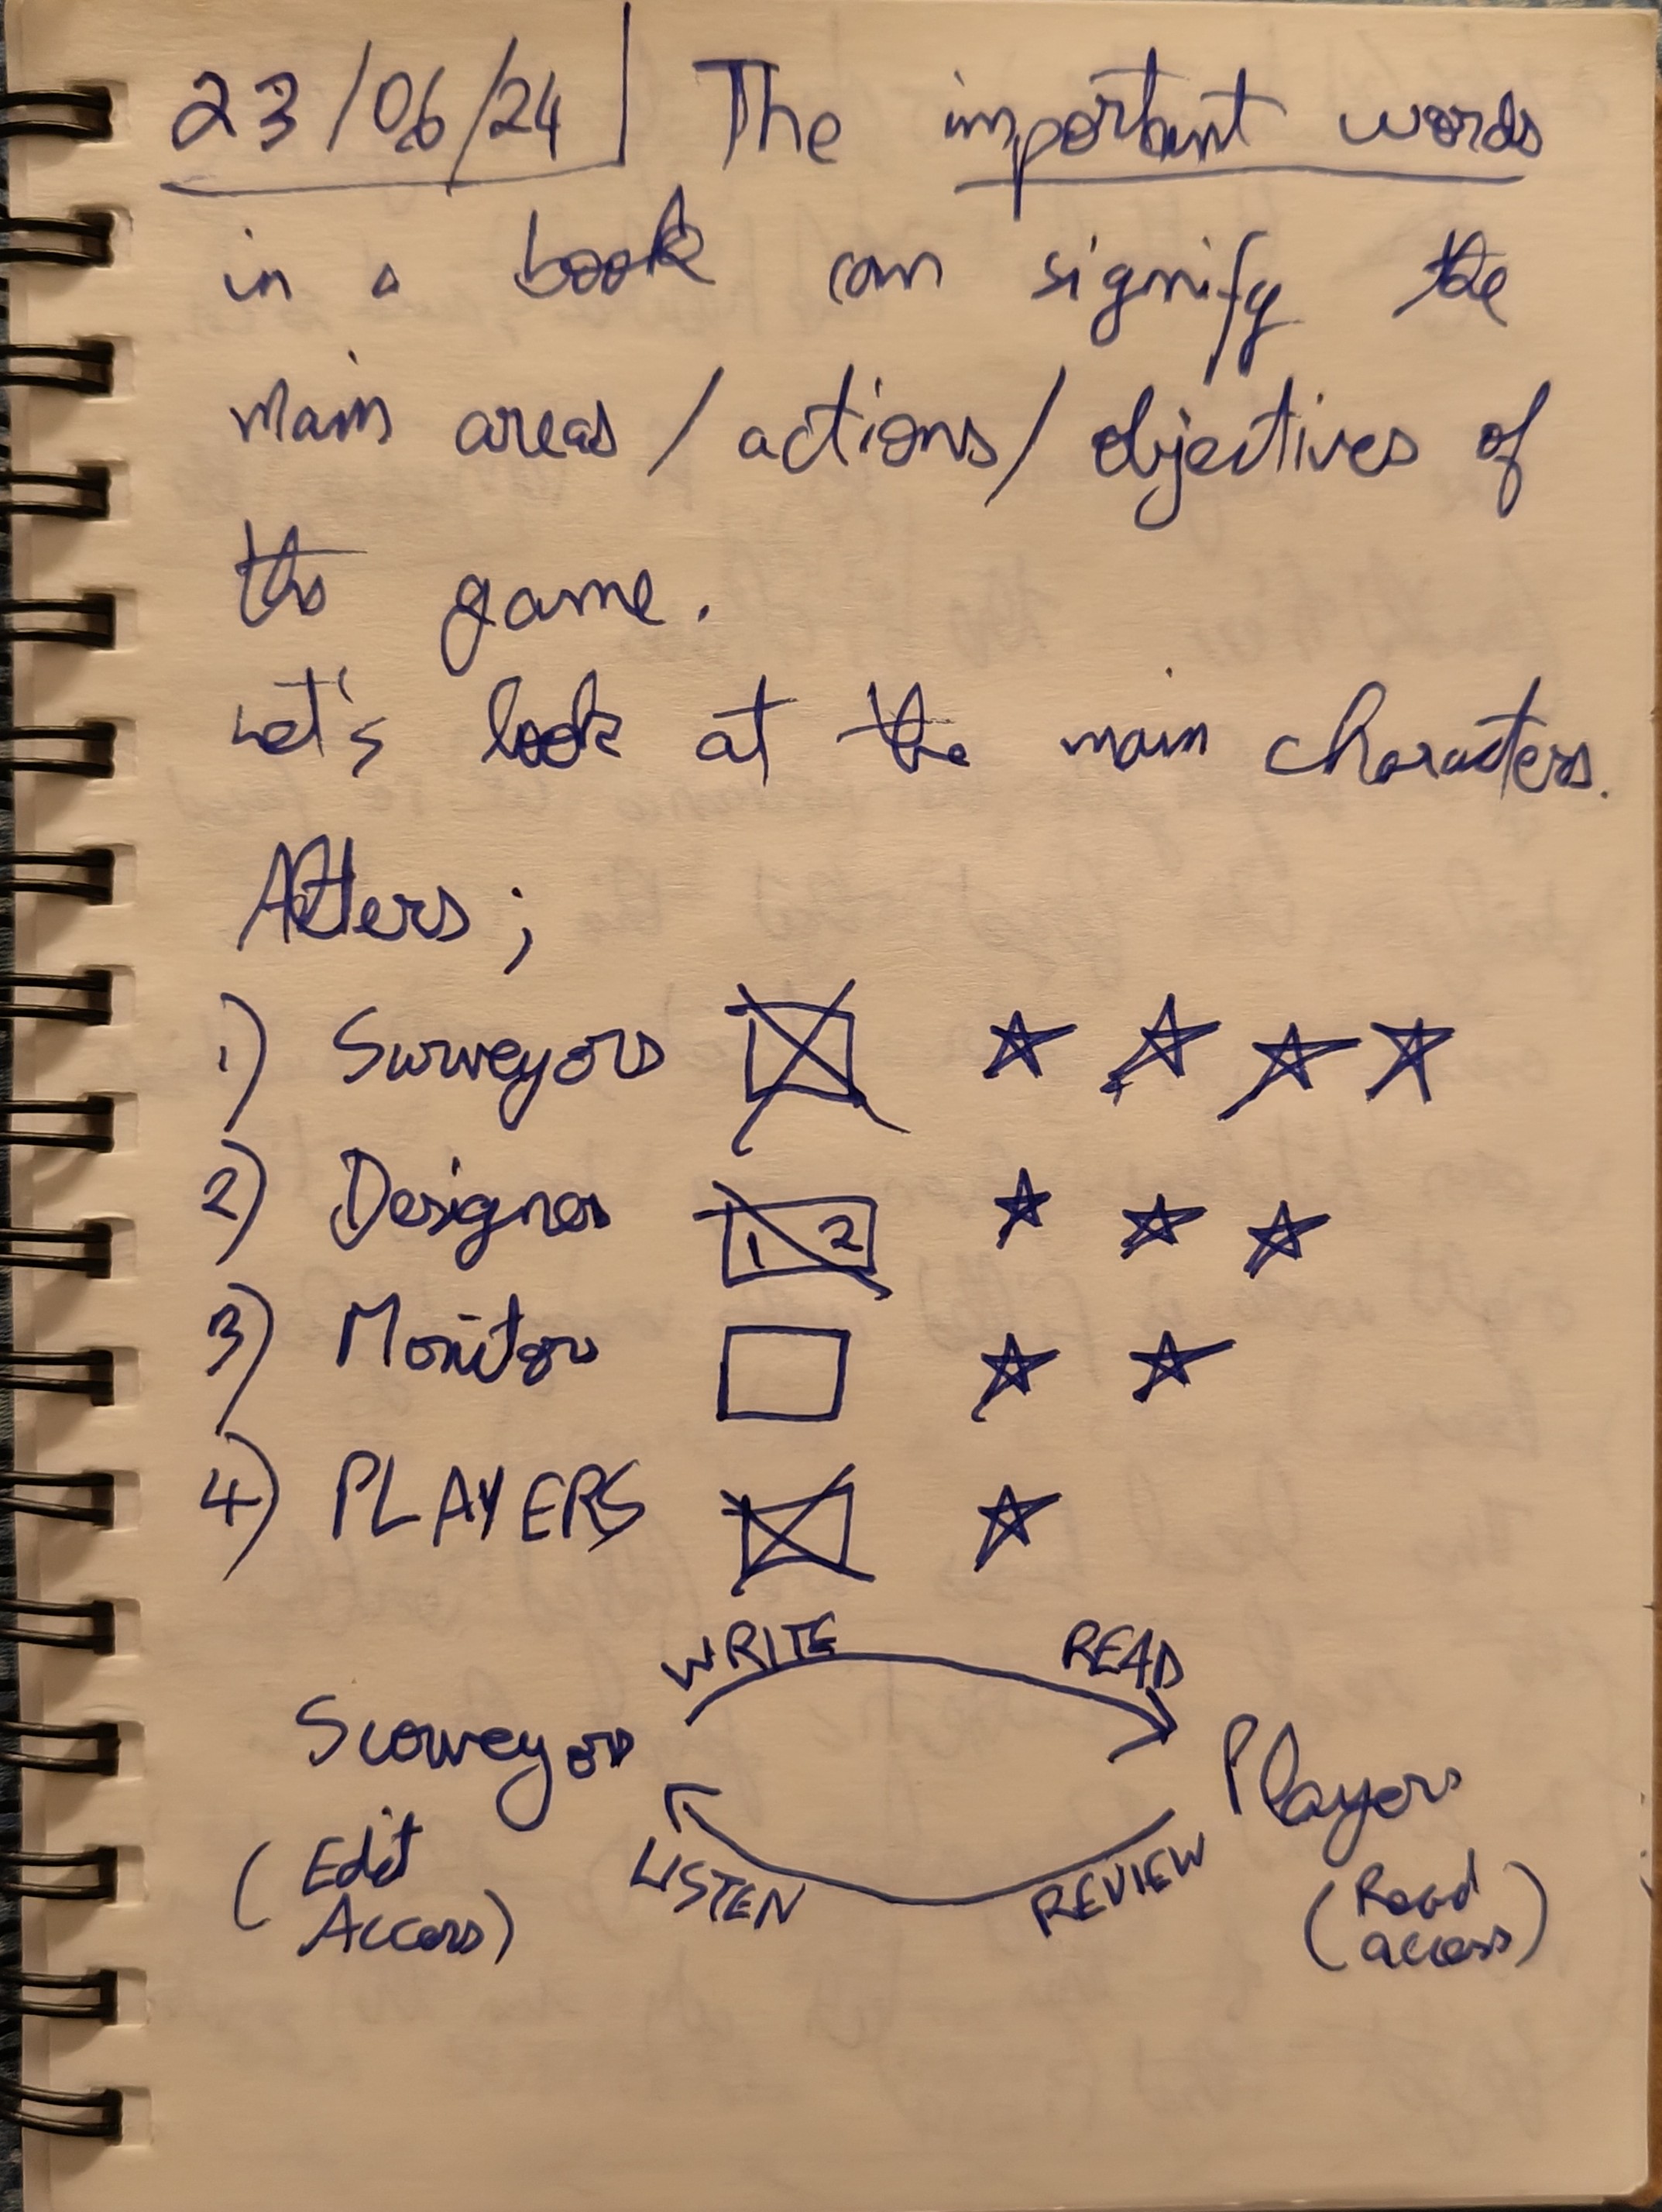 23/06/24 The important words
in a book can signify the
main areas / actions / objectives of
the game.
Let's look at the main characters.
Acters;
1) Surveyors
2) Designer
1 2
3) Monitor
4) PLAYERS
WRITE READ
Surveyors Players
(Edit Access) LISTEN REVIEW (Read access)